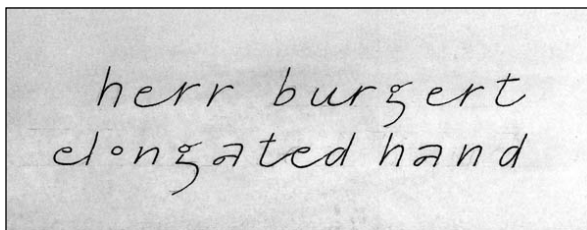 herr burgert
elongated hand